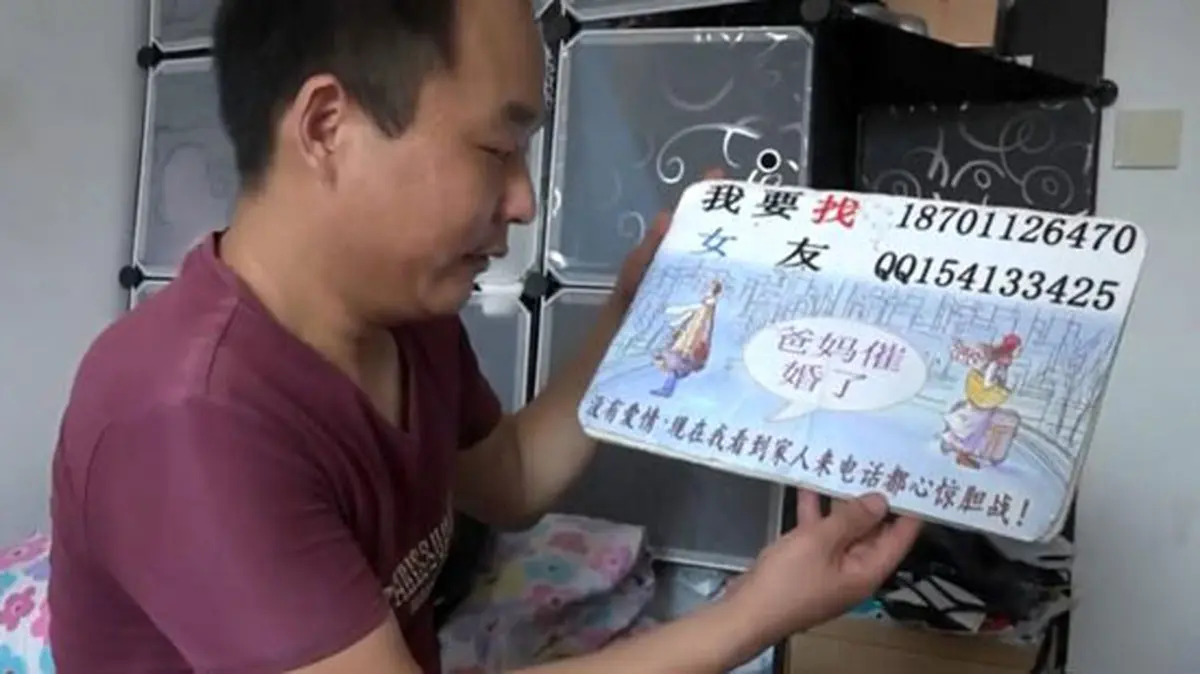 我要找 18701126470
女友 QQ154133425
爸妈催
婚了
没有爱情·现在我看到家人来电话都心惊胆战!